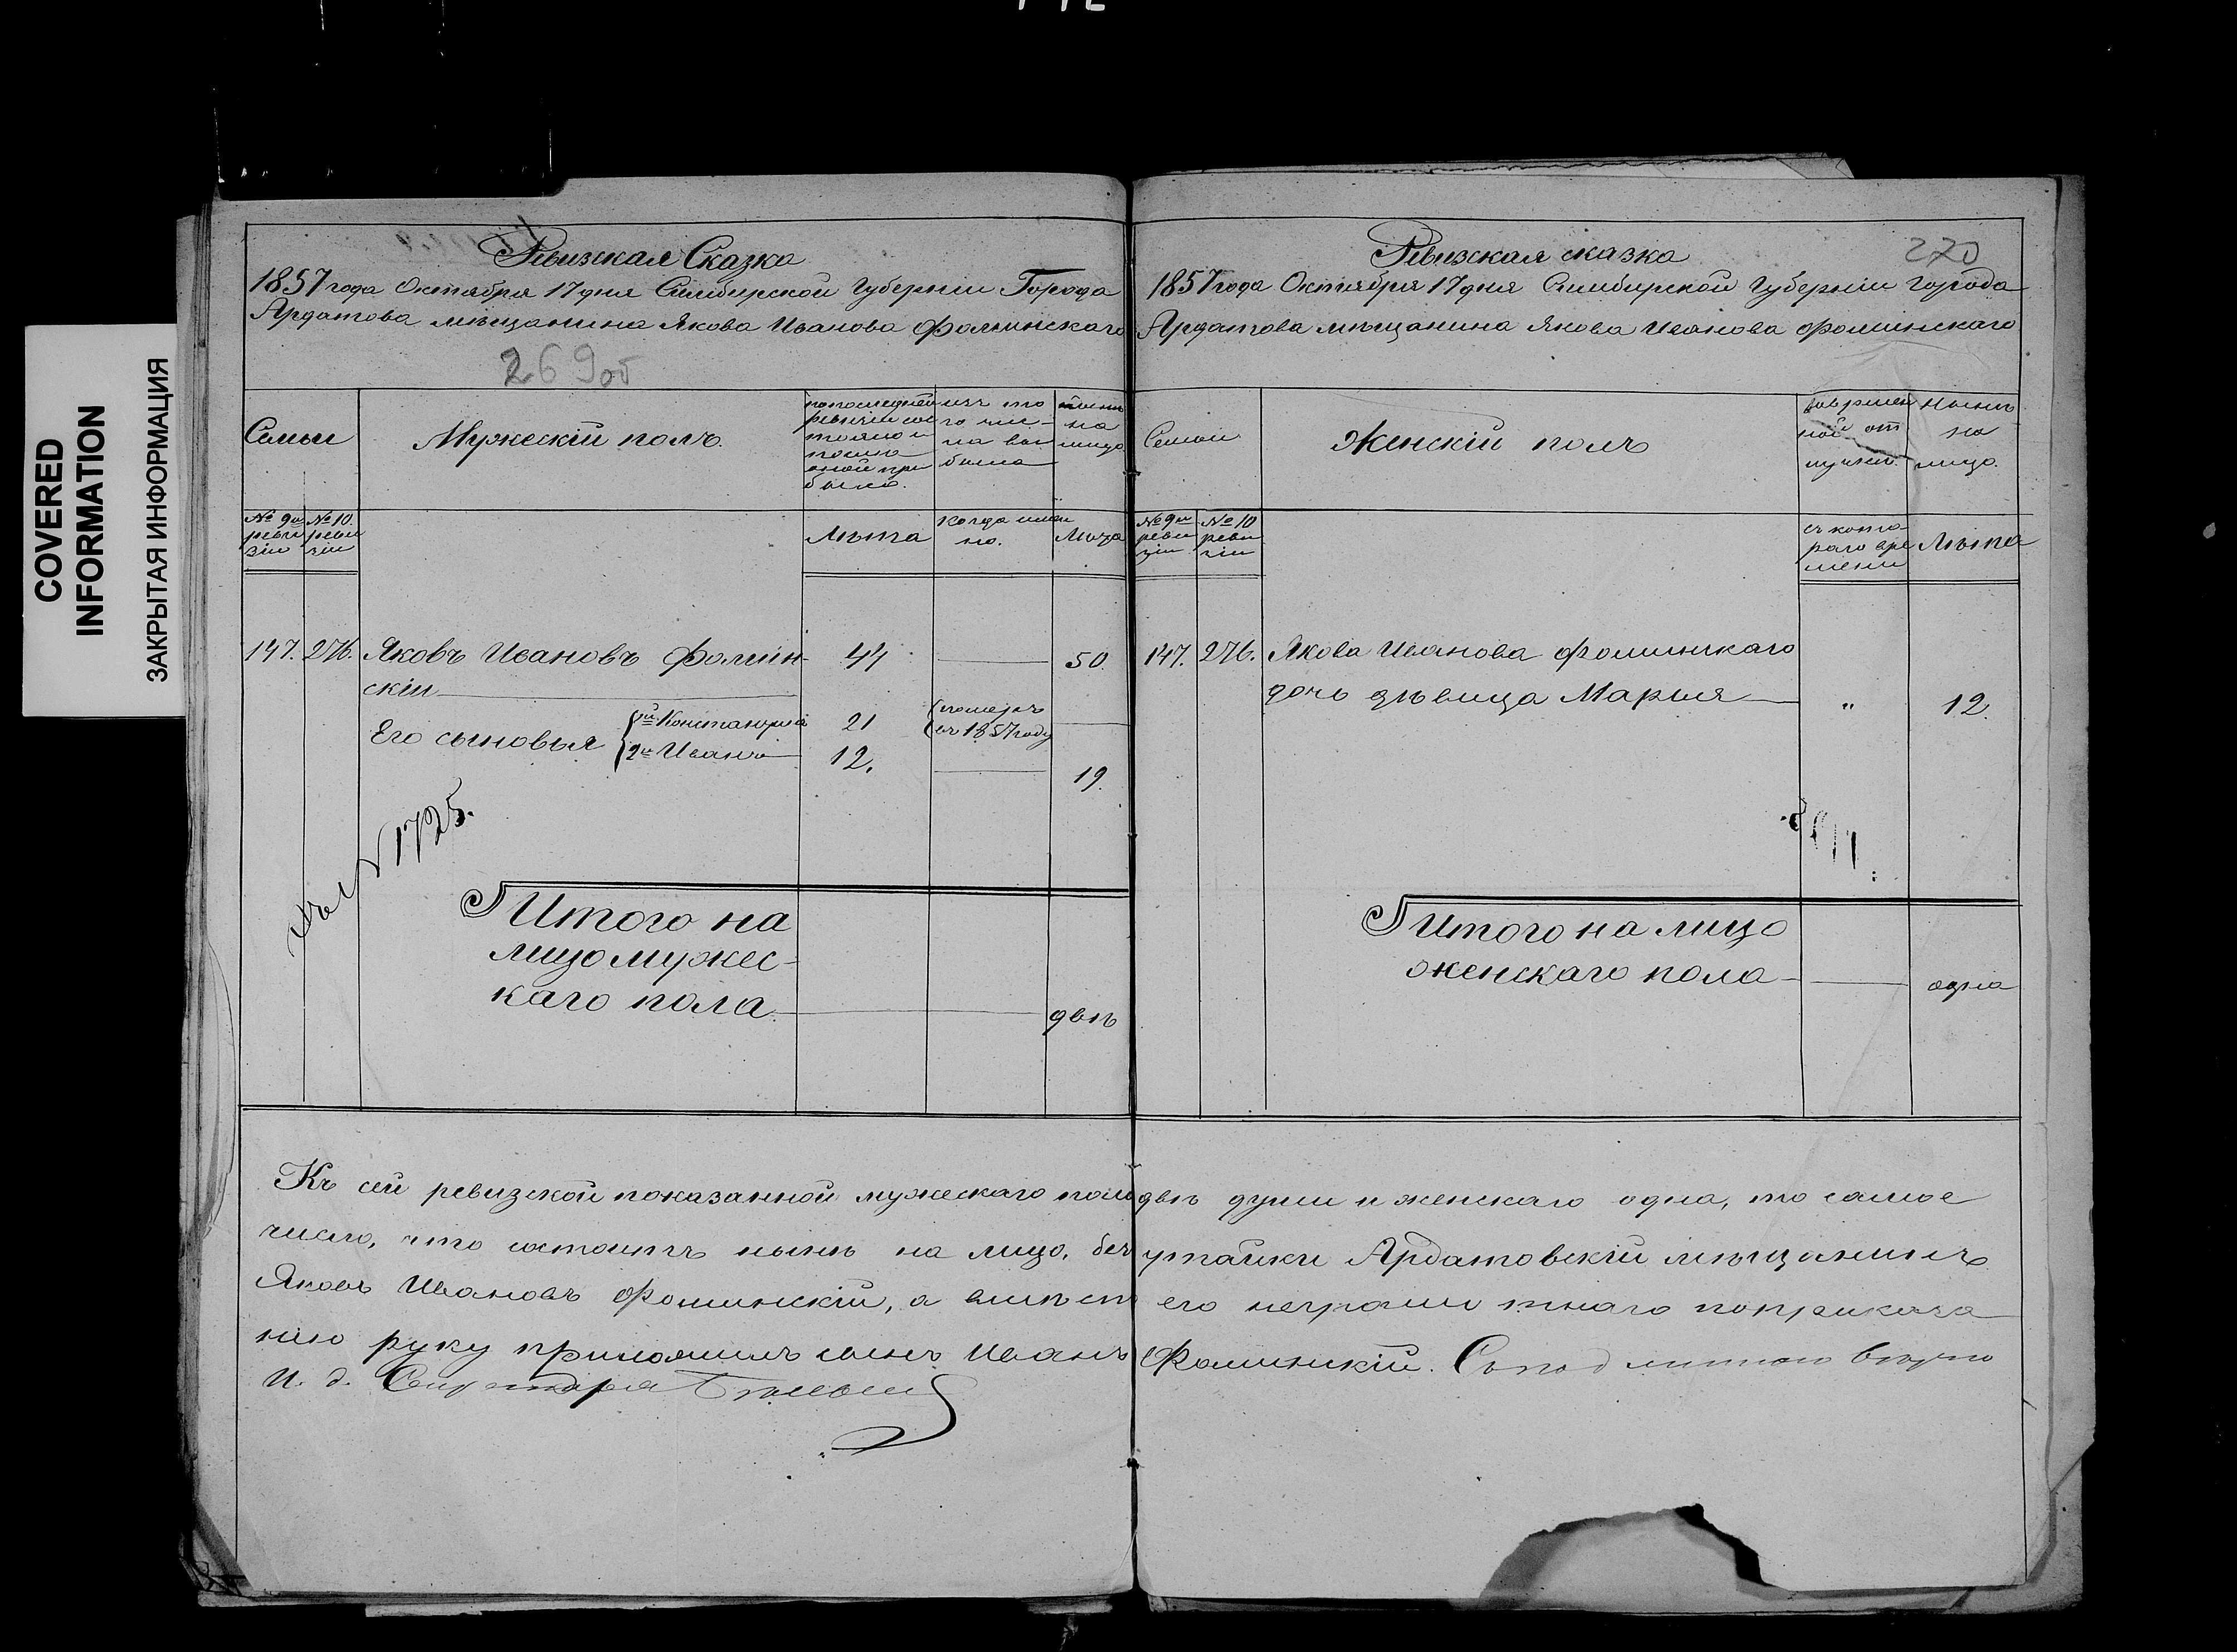 COVERED
INFORMATION
ЗАКРЫТАЯ ИНФОРМАЦИЯ
Ревизская Сказка
1857 года Октября 17 дня Симбирской Губернiи Города
Ардатова мѣщанина Якова Иванова Фоминскаго
269об
Семьи
Мужескiй полъ.
по последней
ревизiи сос
тояло и
после
оной при
было.
изъ то
го чис-
ла вы
было
ныне
на
лицо
№ 9й
реви
зiи
№ 10.
реви
зiи
Лѣта
когда имен
но.
Лѣта
147. 276. Яковъ Ивановъ Фомин- 44 50.
скiи
Его сыновья
1й Константинъ 21 померъ
въ 1857 году
2й Иванъ 12. 19.
№ 1725.
Итого на
лицо мужес-
каго пола двѣ
Ревизская сказка
270
1857 года Октября 17 дня Симбирской Губернiи города
Ардатова мѣщанина Якова Иванова Фоминскаго
Семьи
Женскiй полъ
во времен
ной от
лучке.
ныне
на
лицо.
№ 9й
реви
зiи
№ 10
реви
зiи
съ кото-
раго вре
мени
Лѣта
147. 276. Якова Иванова Фоминскаго
дочь дѣвица Марья " 12.
Итого на лицо
женскаго пола одна
Къ сей ревизской показанной мужескаго пола двѣ души и женскаго одна, то самое
число, что состоитъ нынѣ на лицо, безъ утайки Ардатовскiй мѣщанинъ
Яковъ Ивановъ Фоминскiй, а вмѣсто его неграмотнаго по приказа
нiю руку приложилъ сынъ Иванъ Фоминскiй. Съ подлинною верно
И. д. Секретаря